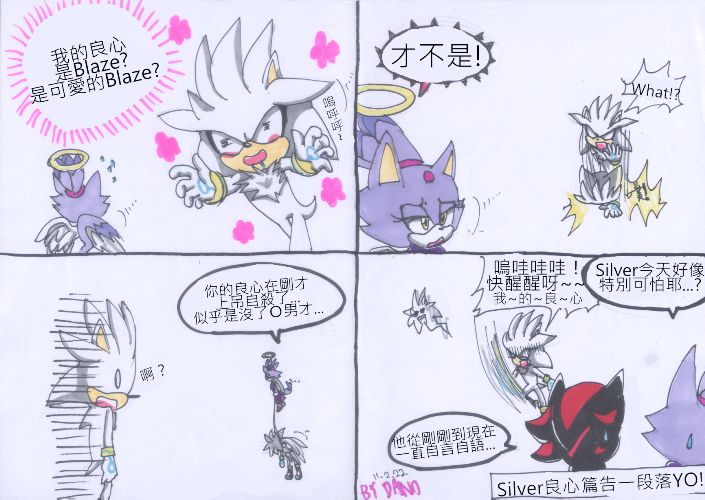 我的良心
是Blaze?
是可愛的Blaze?
嗚呼呼?
才不是!
What!?
你的良心在剛才
上吊自殺了...
似乎是沒了O男才...
啊?
嗚哇哇哇!
快醒醒呀~~
我~的~良~心
Silver今天好像
特別可怕耶...?
他從剛剛到現在
一直自言自語...
11.2.22
BY DANO
Silver良心篇告一段落YO!